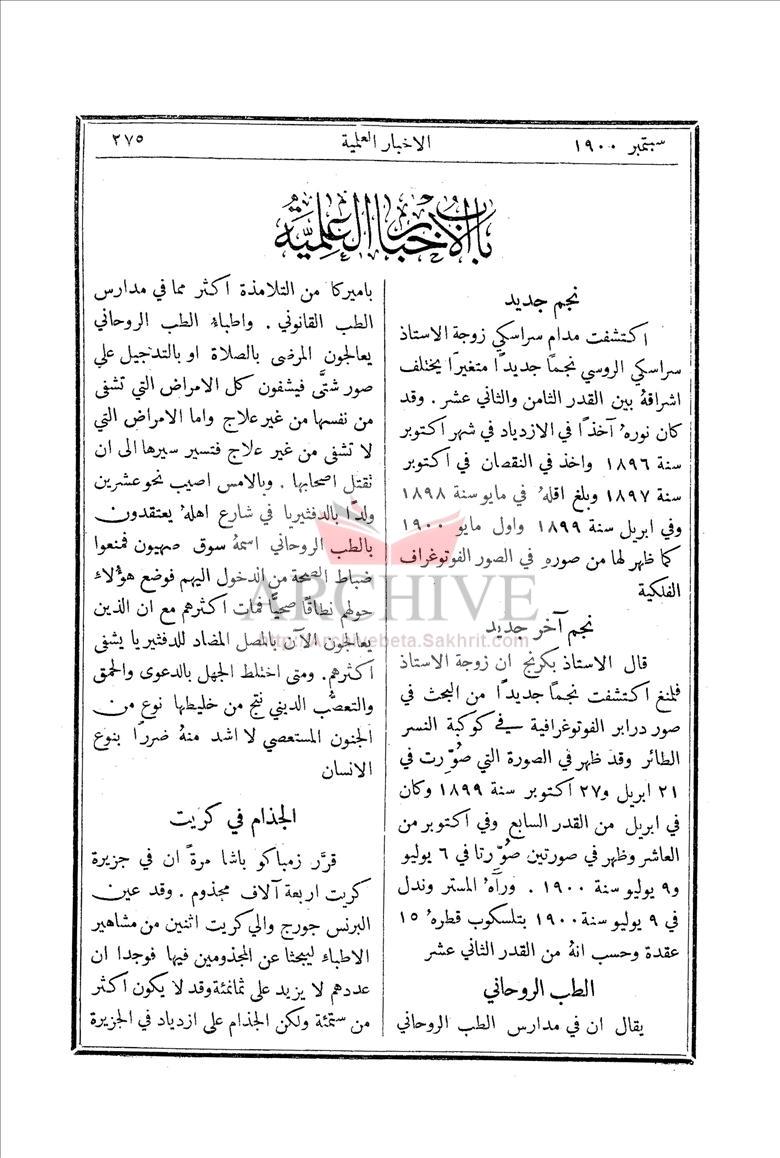 سبتمبر ١٩٠٠
الاخبار العلمية
٢٧٥
باب الاخبار العلمية
نجم جديد
اكتشفت مدام سراسكي زوجة الاستاذ
سراسكي الروسي نجمًا جديدًا متغيرًا يختلف
اشراقهُ بين القدر الثامن والثاني عشر . وقد
كان نوره ُ آخذًا في الازدياد في شهر اكتوبر
سنة ١٨٩٦ واخذ في النقصان في اكتوبر
سنة ١٨٩٧ وبلغ اقلهُ في مايو سنة ١٨٩٨
وفي ابريل سنة ١٨٩٩ واول مايو ١٩٠٠
كما ظهر لها من صوره ِ في الصور الفوتوغراف
الفلكية
نجم آخر جديد
قال الاستاذ بكرنج ان زوجة الاستاذ
فلمنغ اكتشفت نجمًا جديدًا من البحث في
صور درابر الفوتوغرافية في كوكبة النسر
الطائر وقد ظهر في الصورة التي صُوّرت في
٢١ ابريل و٢٧ اكتوبر سنة ١٨٩٩ وكان
في ابريل من القدر السابع وفي اكتوبر من
العاشر وظهر في صورتين صُوّرتا في ٦ يوليو
و٩ يوليو سنة ١٩٠٠ . ورآهُ المستر وندل
في ٩ يوليو سنة ١٩٠٠ بتلسكوب قطره ُ ١٥
عقدة وحسب انهُ من القدر الثاني عشر
الطب الروحاني
يقال ان في مدارس الطب الروحاني
باميركا من التلامذة اكثر مما في مدارس
الطب القانوني . واطباءُ الطب الروحاني
يعالجون المرضى بالصلاة او بالتدجيل على
صور شتَّى فيشفون كل الامراض التي تشفى
من نفسها من غير علاج واما الامراض التي
لا تشفى من غير علاج فتسير سيرها الى ان
نقتل اصحابها . وبالامس اصيب نحو عشرين
ولدًا بالدفثيريا في شارع اهله ُ يعتقدون
بالطب الروحاني اسمهُ سوق صهيون فمنعوا
ضباط الصحة من الدخول اليهم فوضع هؤُلاء
حولهم نطاقًا صحيًّا فمات اكثرهم مع ان الذين
يعالجون الآن بالمصل المضاد للدفثيريا يشفى
اكثرهم. ومتى اختلط الجهل بالدعوى والحمق
والتعصُّب الديني نتج من خليطها نوع من
الجنون المستعصي لا اشد منهُ ضررًا بنوع
الانسان
الجذام في كريت
قرَّر زمباكو باشا مرةً ان في جزيرة
كريت اربعة آلاف مجذوم . وقد عين
البرنس جورج والي كريت اثنين من مشاهير
الاطباء ليبحثا عن المجذومين فيها فوجدا ان
عددهم لا يزيد على ثمانمئة وقد لا يكون اكثر
من ستمئة ولكن الجذام على ازدياد في الجزيرة
ARCHIVE
http://Archivebeta.Sakhrit.com